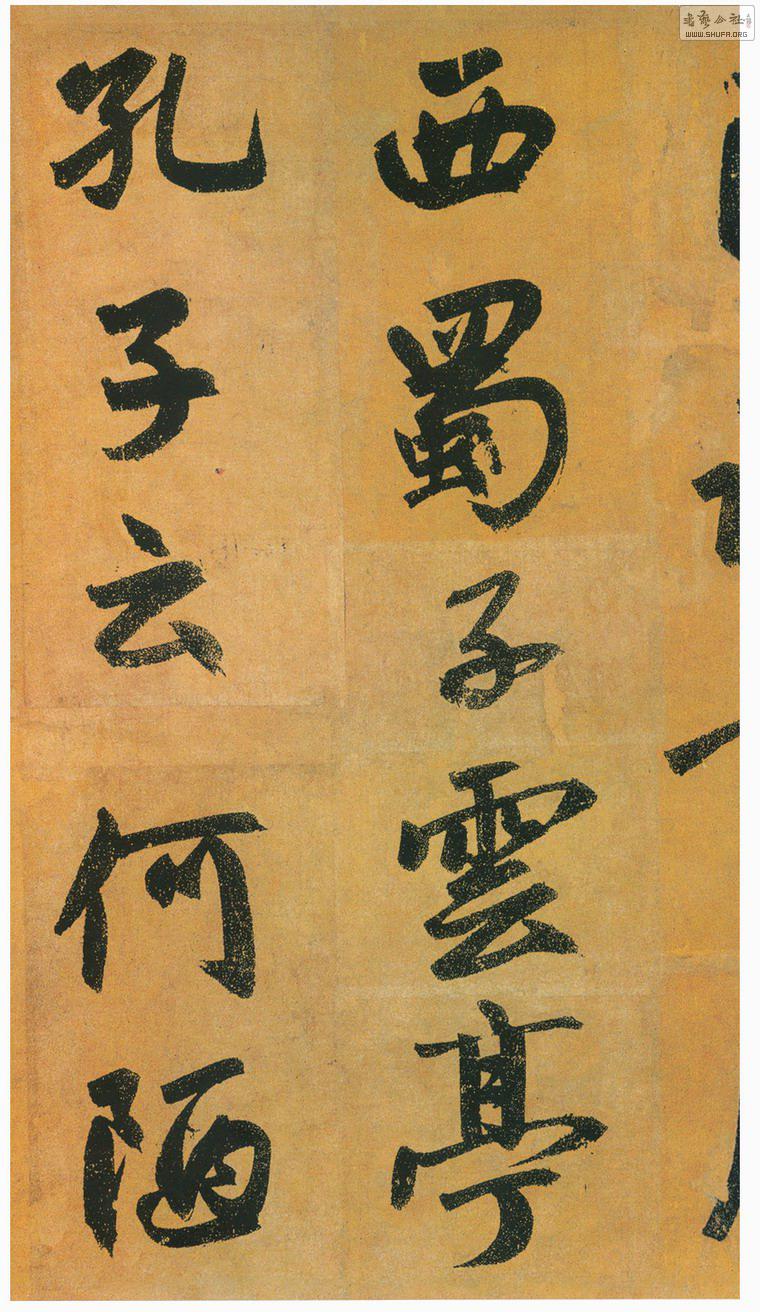 西蜀子雲亭
孔子云何陋
書藝公社
WWW.SHUFA.ORG